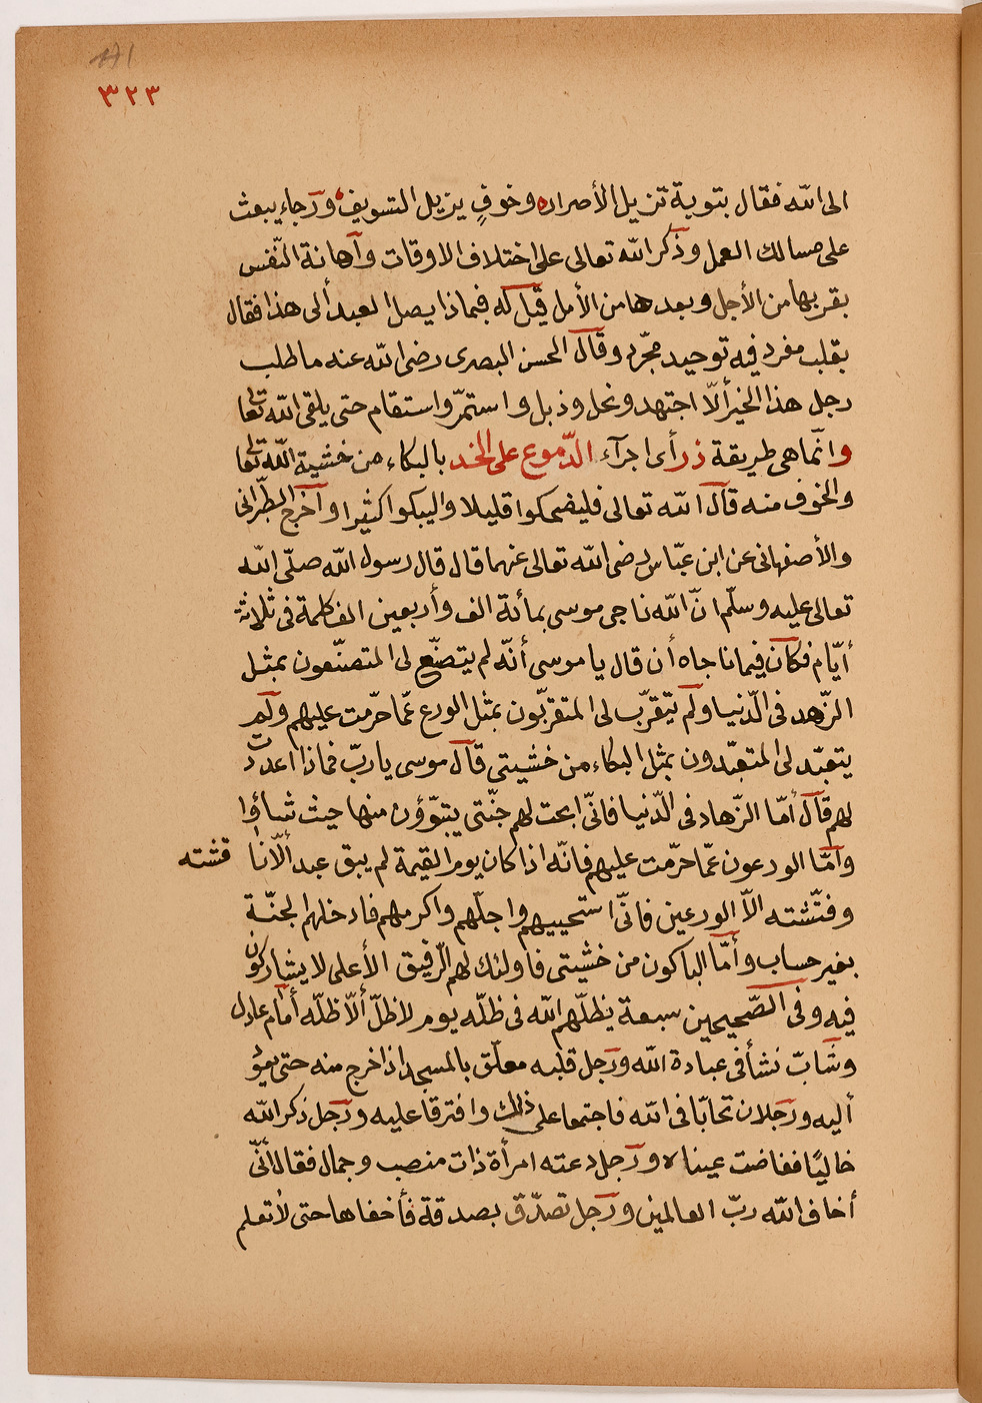 ٣٢٣
الى الله فقال بتوبة تزيل الأصرار وخوفٍ يزيل التسويف ورجاء يبعث
على مسالك العمل وذكر الله تعالى على اختلاف الاوقات وآهانة النّفس
بقربها من الأجل وبعدها من الأمل قيل له فبماذا يصل العبد ألى هذا فقال
بقلب مفرد فيه توحيد مجرّد وقال الحسن البصرى رضى الله عنه ما طلب
رجل هذا الخير ألّا اجتهد ونحل وذبل واستمرّ واستقام حتى يلقى الله تعا
وانّما هى طريقة ذر أى اجرآء الدّموع على الخد بالبكاء من خشية الله تعا
والخوف منه قال الله تعالى فليضحكوا قليلا واليبكوا كثيرا وآخرج الطّبرانى
والأصفهانى عن ابن عبّاس رضى الله تعالى عنهما قال قال رسول الله صلّى الله
تعالى عليه وسلّم انّ الله ناجى موسى بمأئة الف وأربعين الف كلمة فى ثلاثة
أيّام فكان فيما ناجاه أن قال يا موسى أنّه لم يتصنّع لى المتصنّعون بمثل
الزّهد فى الدّنيا ولم يتقرّب لى المتقربّون بمثل الورع عمّا حرّمت عليهم ولم
يتعبّد لى المتعبّدون بمثل البكاء من خشيتى قال موسى يا ربّ فماذا اعددت
لهم قال أمّا الزّهاد فى الدّنيا فانّى ابحت لهم جنّتى يتبوّؤن منها حيث شاؤا
وآمّا الودعون عمّا حرّمت عليهم فانّه اذا كان يوم القيمة لم يبق عبد ألّا نا قشته
وفتّشته الاّ الورعين فانّى استحييهم واجلّهم واكرمهم فادخلهم الجنّة
بغير حساب وأمّا الباكون من خشيتى فأولئك لهم الرّفيق الأعلى لا يشاركون
فيه وفى الصّحيحين سبعة يظلّهم الله فى ظلّه يوم لا ظلّ ألّا ظلّه أمام عادل
وشابّ نشأ فى عبادة الله ورجل قلبه معلّق بالمسجد اذا خرج منه حتى يعوْ
أليه ورجلان تحابّا فى الله فاجتمعا على ذلك وافترقا عليه ورجل ذكر الله
خاليًا ففاضت عيناه ورجل دعته امرأة ذات منصب وجمال فقال أنّى
أخاف الله ربّ العالمين ورجل تصدّق بصدقة فأخفاها حتى لأتعلم